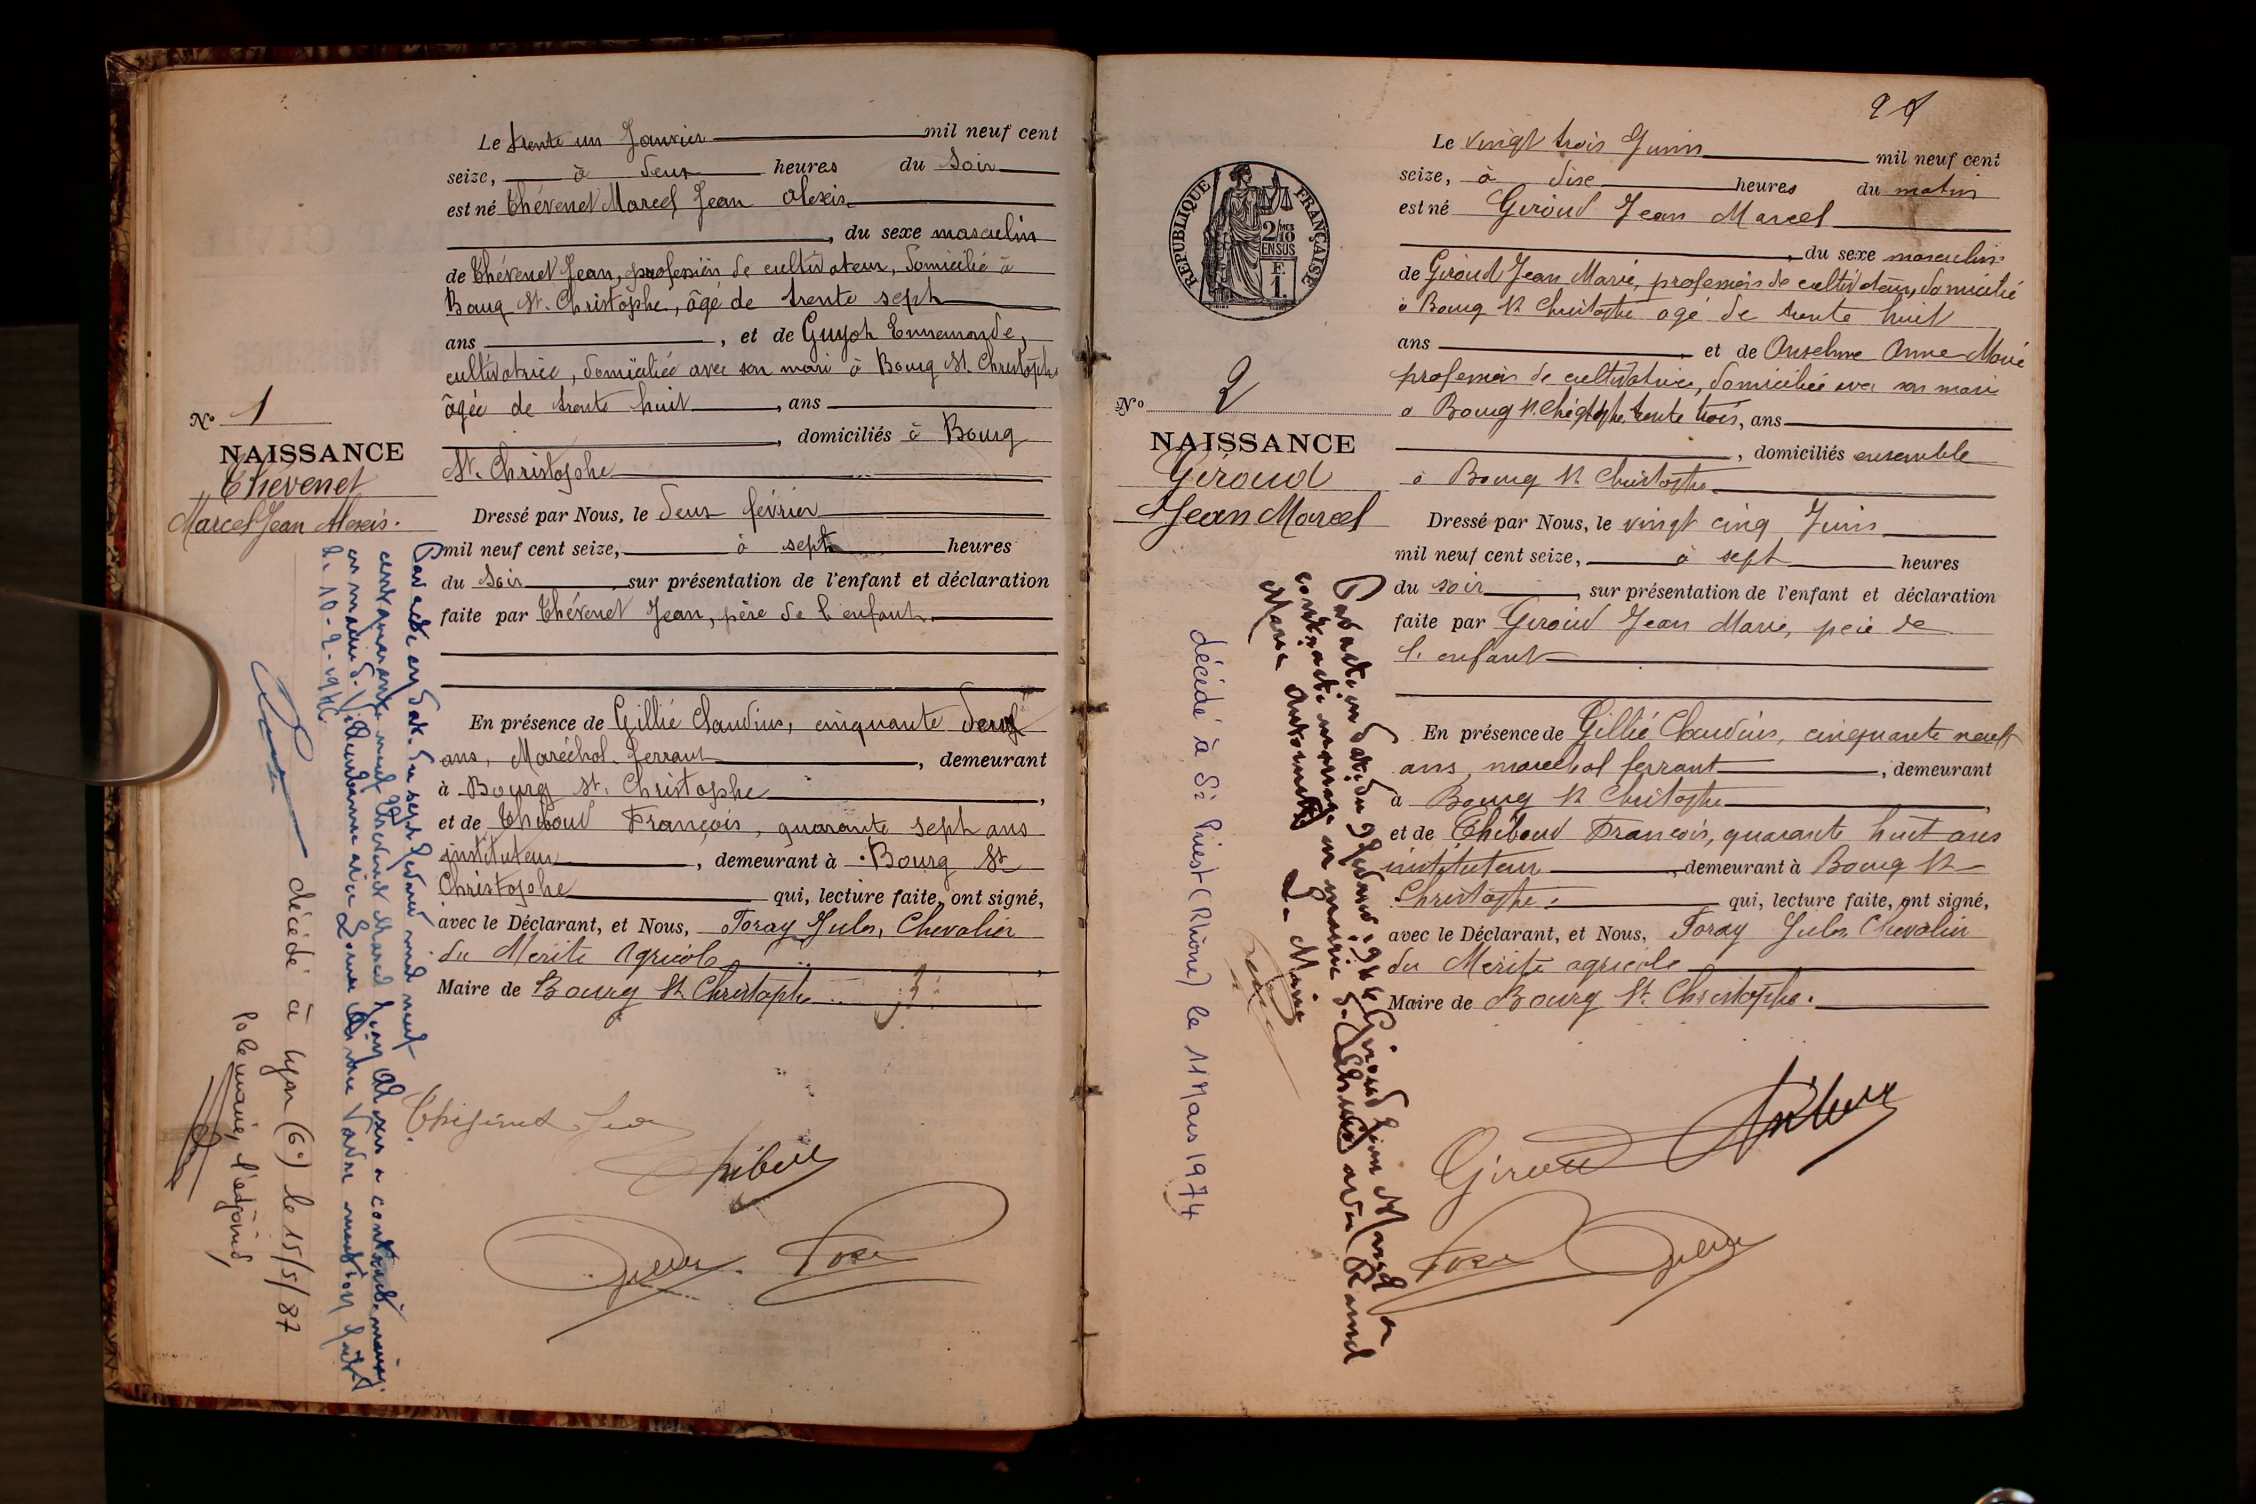 Le trente un Janvier mil neuf cent
seize, à deux heures du Soir
est né Thévenet Marcel Jean Alexis
, du sexe masculin
de Thévenet Jean, profession de cultivateur, domicilié à
Bourg St. Christophe, âgé de trente sept
ans , et de Guyot Ennemonde,
cultivatrice, domiciliée avec son mari à Bourg St. Christophe
âgée de trente huit , ans
, domiciliés à Bourg
St. Christophe
Dressé par Nous, le deux février
mil neuf cent seize, à sept heures
du soir sur présentation de l'enfant et déclaration
faite par Thévenet Jean, père de l'enfant
En présence de Gillié Claudius, cinquante
ans, Maréchal ferrant , demeurant
à Bourg St. Christophe ,
et de Thiboud François, quarante sept ans
instituteur , demeurant à Bourg St
Christophe qui, lecture faite, ont signé,
avec le Déclarant, et Nous, Foray Jules, Chevalier
du Mérite Agricole ,
Maire de Bourg St Christophe
No 1
NAISSANCE
Thévenet
Marcel Jean Alexis.
Par acte en date du sept février mil neuf
cent quarante neuf Thévenet Marcel Jean Alexis a contracté mariage
en mairie de Villeurbanne avec mention faite
le 10-2-
décédé à Lyon (6°) le 15/5/87
Po le maire, l'adjoint,
2
Le vingt trois Juin mil neuf cent
seize, à dix heures du matin
est né Giroud Jean Marcel
, du sexe masculin
de Giroud Jean Marie, profession de cultivateur, domicilié
à Bourg St Christophe agé de trente huit
ans et de Anselme Anne Marie
profession de cultivatrice, domiciliée avec son mari
à Bourg St. Christophe trente trois, ans
, domiciliés ensemble
à Bourg St Christophe
Dressé par Nous, le vingt cinq Juin
mil neuf cent seize, à sept heures
du soir , sur présentation de l'enfant et déclaration
faite par Giroud Jean Marie, père de
l'enfant
En présence de Gillié Claudius, cinquante neuf
ans, maréchal ferrant , demeurant
à Bourg St Christophe ,
et de Thiboud François, quarante huit ans
instituteur , demeurant à Bourg St
Christophe. qui, lecture faite, ont signé,
avec le Déclarant, et Nous, Foray Jules Chevalier
du Mérite agricole
Maire de Bourg St. Christophe.
RÉPUBLIQUE FRANÇAISE
2/10
EN SUS
F.
1.
No 2
NAISSANCE
Giroud
Jean Marcel
Par acte en date du 9 Giroud Jean Marcel a
contracté mariage en mairie de avec
Marie Antoinette Le Maire
décédé à St Priest (Rhône) le 11 Mars 1974
Giroud